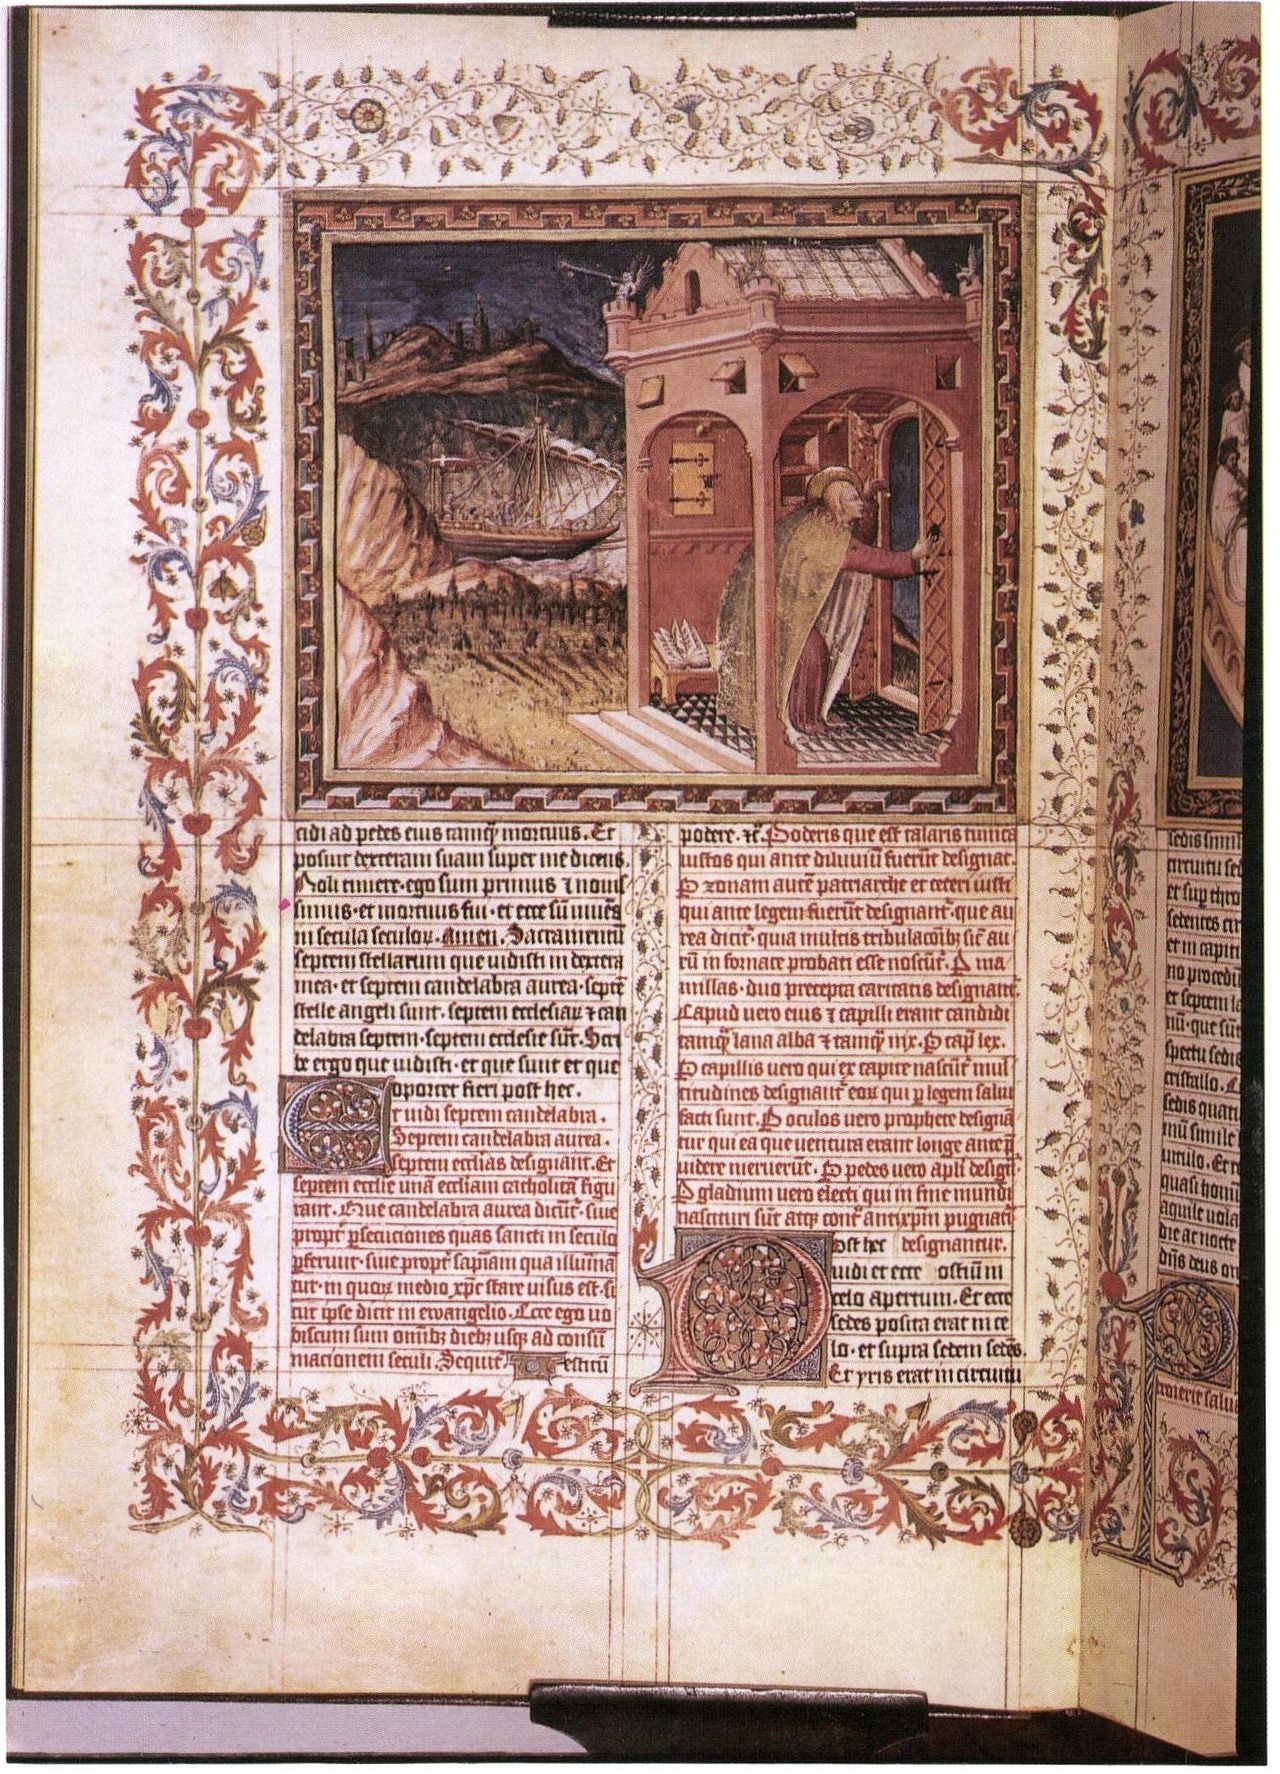 cidi ad pedes eius tamqͣ mortuus. Et
posuit dexteram suam super me dicens.
Noli timere. ego sum primus ⁊ nouis
simus. et mortuus fui. et ecce sū uiuēs
in secula seculoꝝ. Amen. Sacramentū
septem stellarum que uidisti in dextera
mea. et septem candelabra aurea. septē
stelle angeli sunt. septem ecclesiaꝝ ⁊ can
delabra septem. septem ecclesie sūt. Scri
be ergo que uidisti. et que sunt et que
oportet fieri post hec.
Et uidi septem candelabra.
Septem candelabra aurea.
septem ecclias designant. Et
septem ecclie unā eccliam catholicā figu
rant. Que candelabra aurea dicūt᷑. siue
propt᷑ ꝑsecuciones quas sancti in seculo
ꝑferunt. siue propt᷑ sapiām qua illumīa
tur. in quoꝝ medio xp̄c stare uisus est. si
cut ipse dicit in ewangelio. Ecce ego uo
biscum sum omībꝫ diebꝫ usqꝫ ad consū
macionem seculi. Sequit᷑ Uestitū
podere. ⁊c̄. Poderis que est talaris tunica
iustos qui ante diluuiū fuerūt designat.
P zonam autē patriarche et ceteri iusti
qui ante legem fuerūt designant᷑. que au
rea dicit᷑. quia multis tribulaconibꝫ sic᷑ au
rū in fornace probati esse noscūt᷑. P ma
millas. duo precepta caritatis designant᷑.
Capud uero eius ⁊ capilli erant candidi
tamqͣ lana alba ⁊ tamqͣ nix. P cap᷑ lex.
P capillis uero qui ex capite nascūt᷑ mul
titudines designant᷑ eoꝝ qui ꝑ legem salui
facti sunt. P oculos uero prophete designā
tur qui ea que uentura erant longe ante p̄
uidere meruerūt. P pedes uero apl̄i desigt᷑.
P gladium uero electi qui in fine mundi
nascituri sūt atqꝫ cont᷑ antixp̄m pugnat᷑i
designantur.
Post hec
uidi et ecce ostiū in
celo apertum. Et ecce
sedes posita erat in ce
lo. et supra sedem sedēs.
Et yris erat in circuitu
sedis simil
circuitu sed
et sup thro
sedentes cir
et in capiti
no procedū
et septem la
nū. que sūt
spectu sedis
cristallo. E
sedis quatu
mū simile
uitulo. Et
quasi homi
aquile uola
die ac nocte
dn̄s deus om